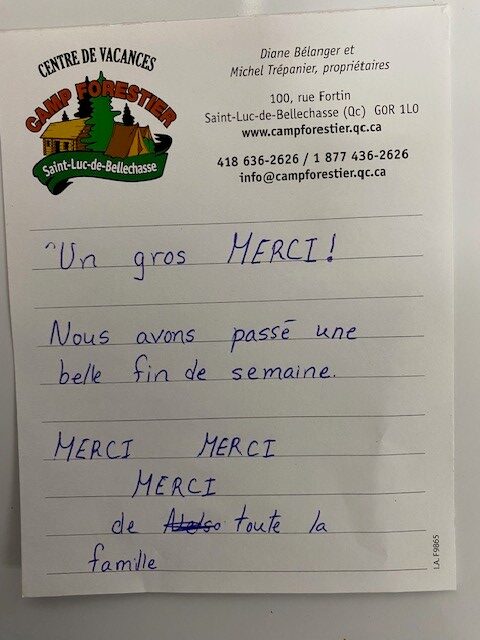 CENTRE DE VACANCES
CAMP FORESTIER
Saint-Luc-de-Bellechasse
Diane Bélanger et
Michel Trépanier, propriétaires
100, rue Fortin
Saint-Luc-de-Bellechasse (Qc) G0R 1L0
www.campforestier.qc.ca
418 636-2626 / 1 877 436-2626
info@campforestier.qc.ca
Un gros MERCI!
Nous avons passé une
belle fin de semaine.
MERCI MERCI
MERCI
de toute la
famille
I.A. F9865